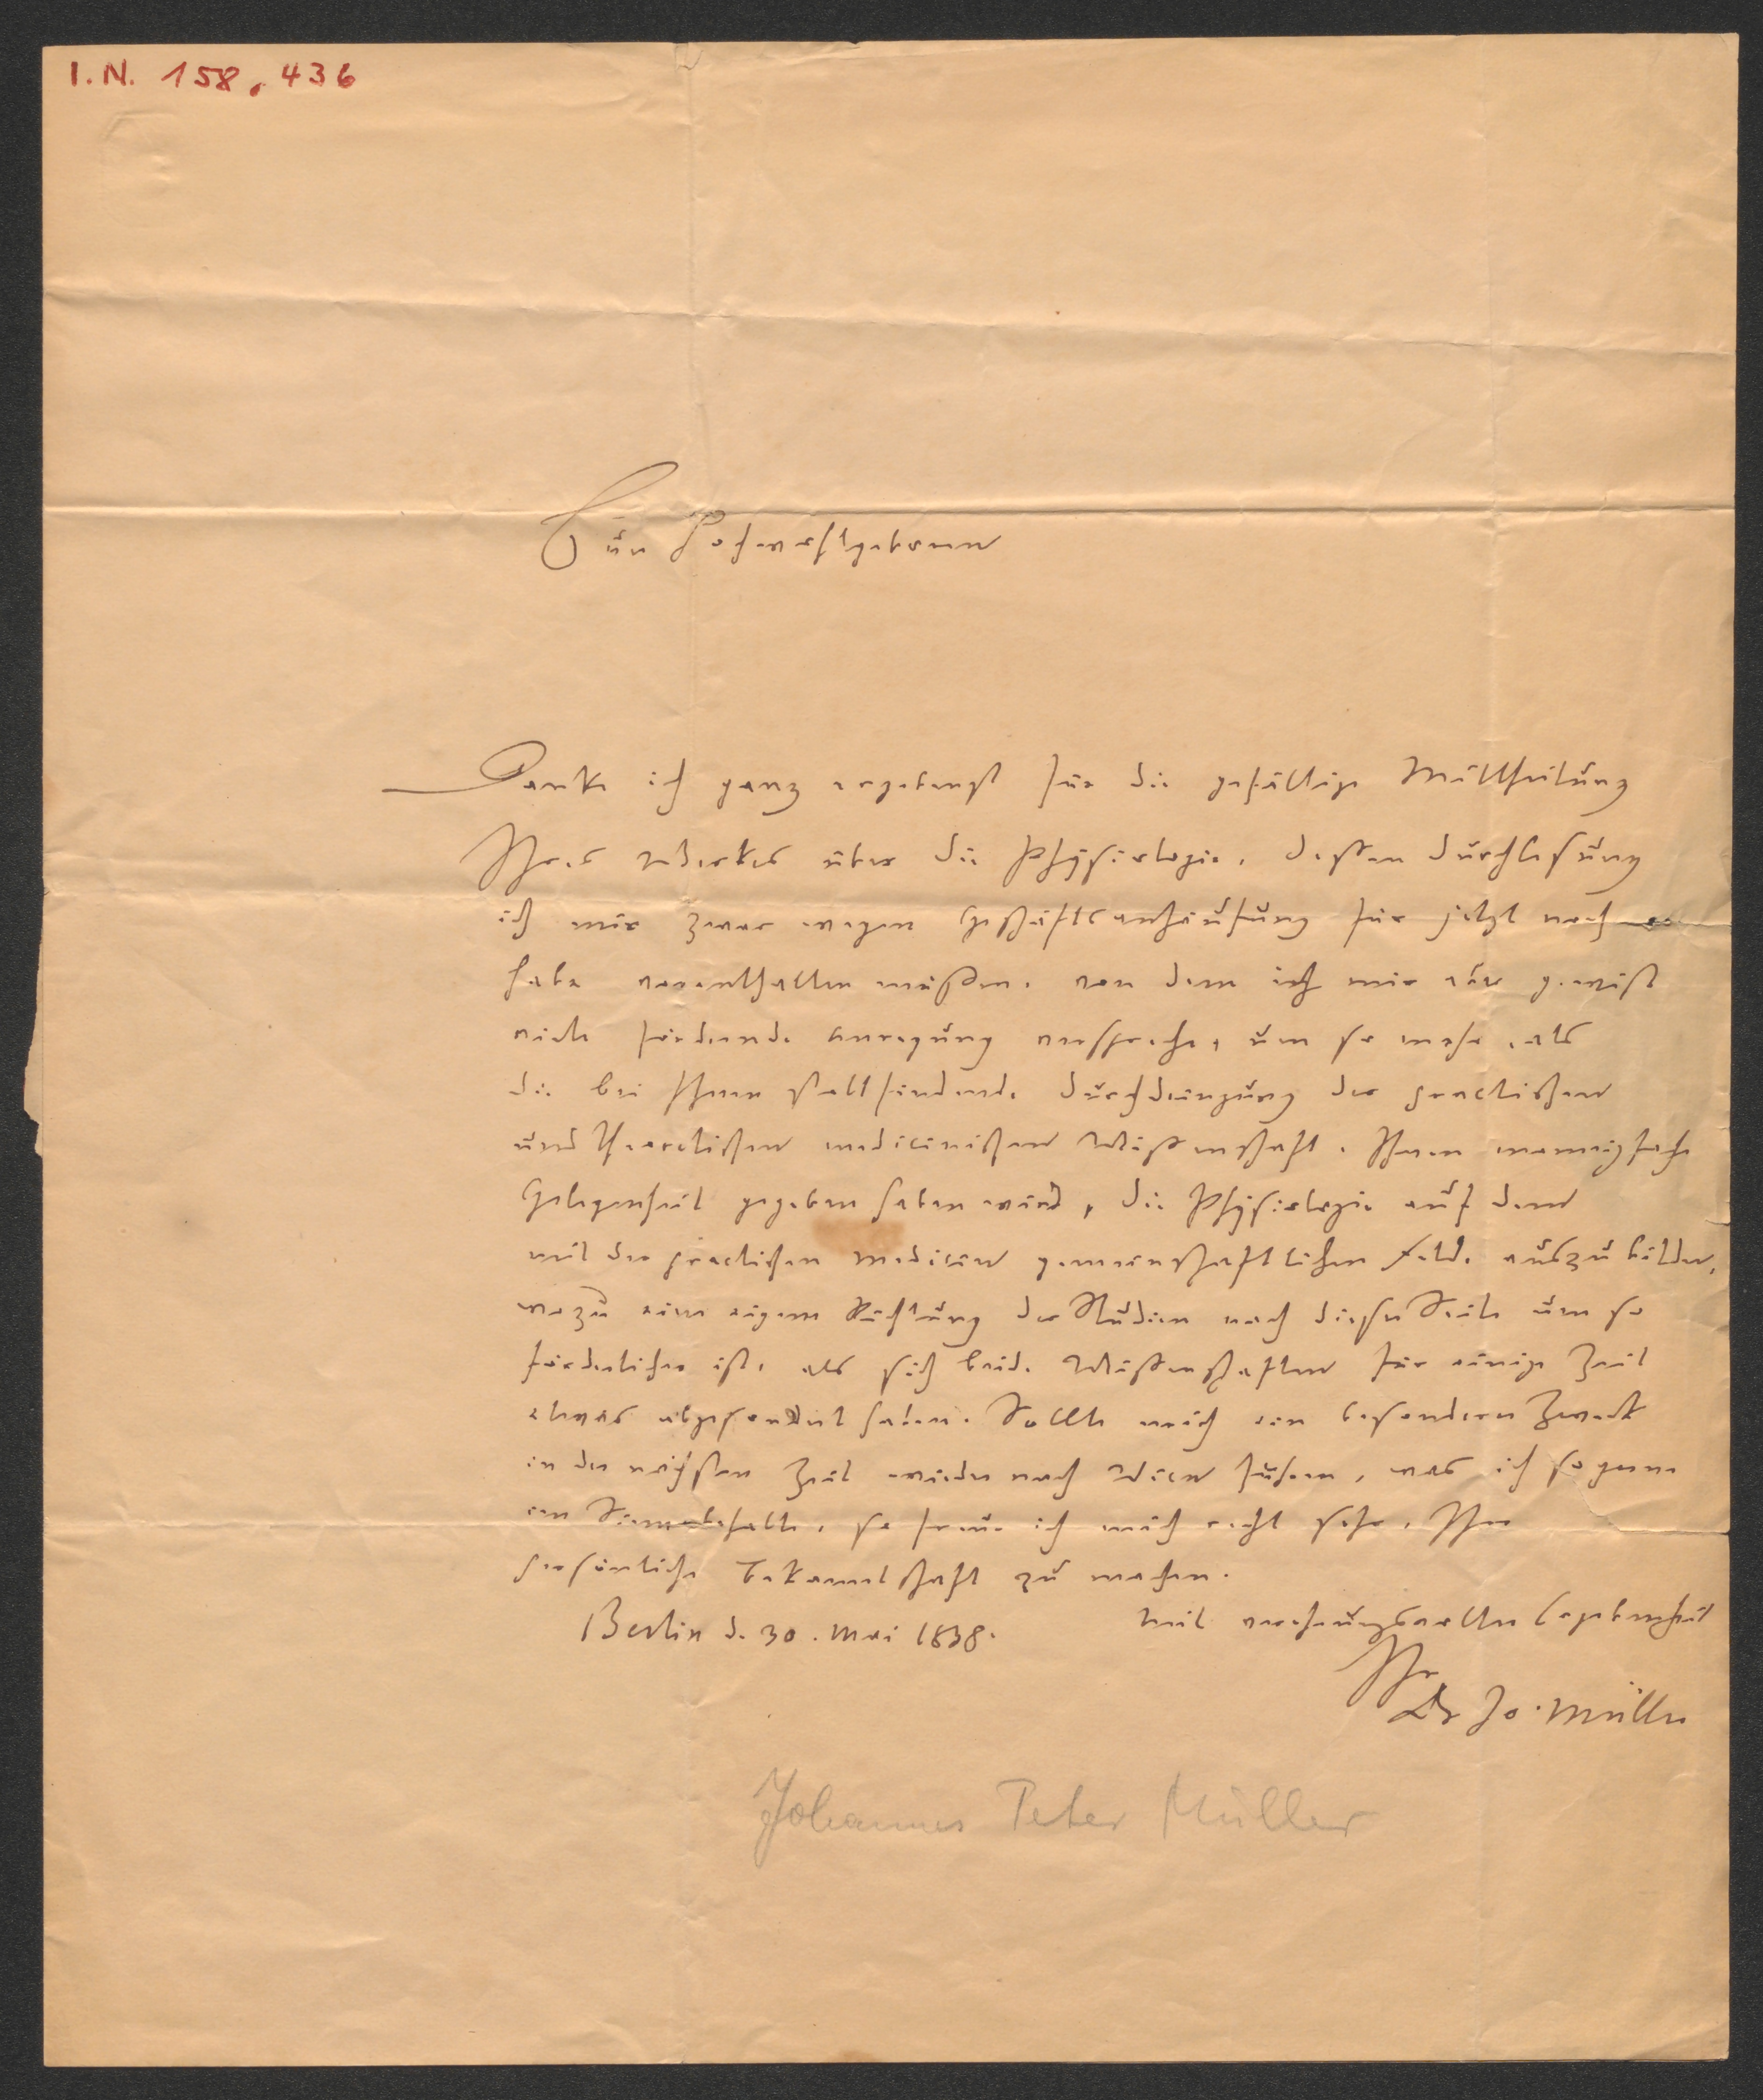 I.N. 158.436
Euer Hochwohlgeboren
Danke ich ganz ergebenst für die gefällige Mittheilung
Ihres Werkes über die Physiologie, dessen Durchlesung
ich mir zwar wegen Geschäftsanhäufung für jetzt noch
habe vorenthalten müßen, von dem ich mir aber gewiß
viele fördernde Anregung verspreche, um so mehr, als
die bei Ihnen stattfindende Durchdringung der practischen
und theoretischen medicinischen Wissenschaft, Ihnen mannigfache
Gelegenheit gegeben haben wird, die Physiologie auf dem
mit der practischen Medicin gemeinschaftlichen Felde auszubilden,
wozu eine eigene Richtung der Studien nach dieser Seite um so
förderlicher ist, als sich beide Wissenschaften für einige Zeit
etwas abgesondert haben. Sollte mich ein besonderer Zweck
in der nächsten Zeit wieder nach Wien führen, was ich so gerne
im Sinne behalte, so freue ich mich recht sehr, Ihre
persönliche Bekanntschaft zu machen.
Berlin d. 30. Mai 1838.
Mit verehrungsvoller Ergebenheit
Ihr
Dr Jo. Müller
Johannes Peter Müller